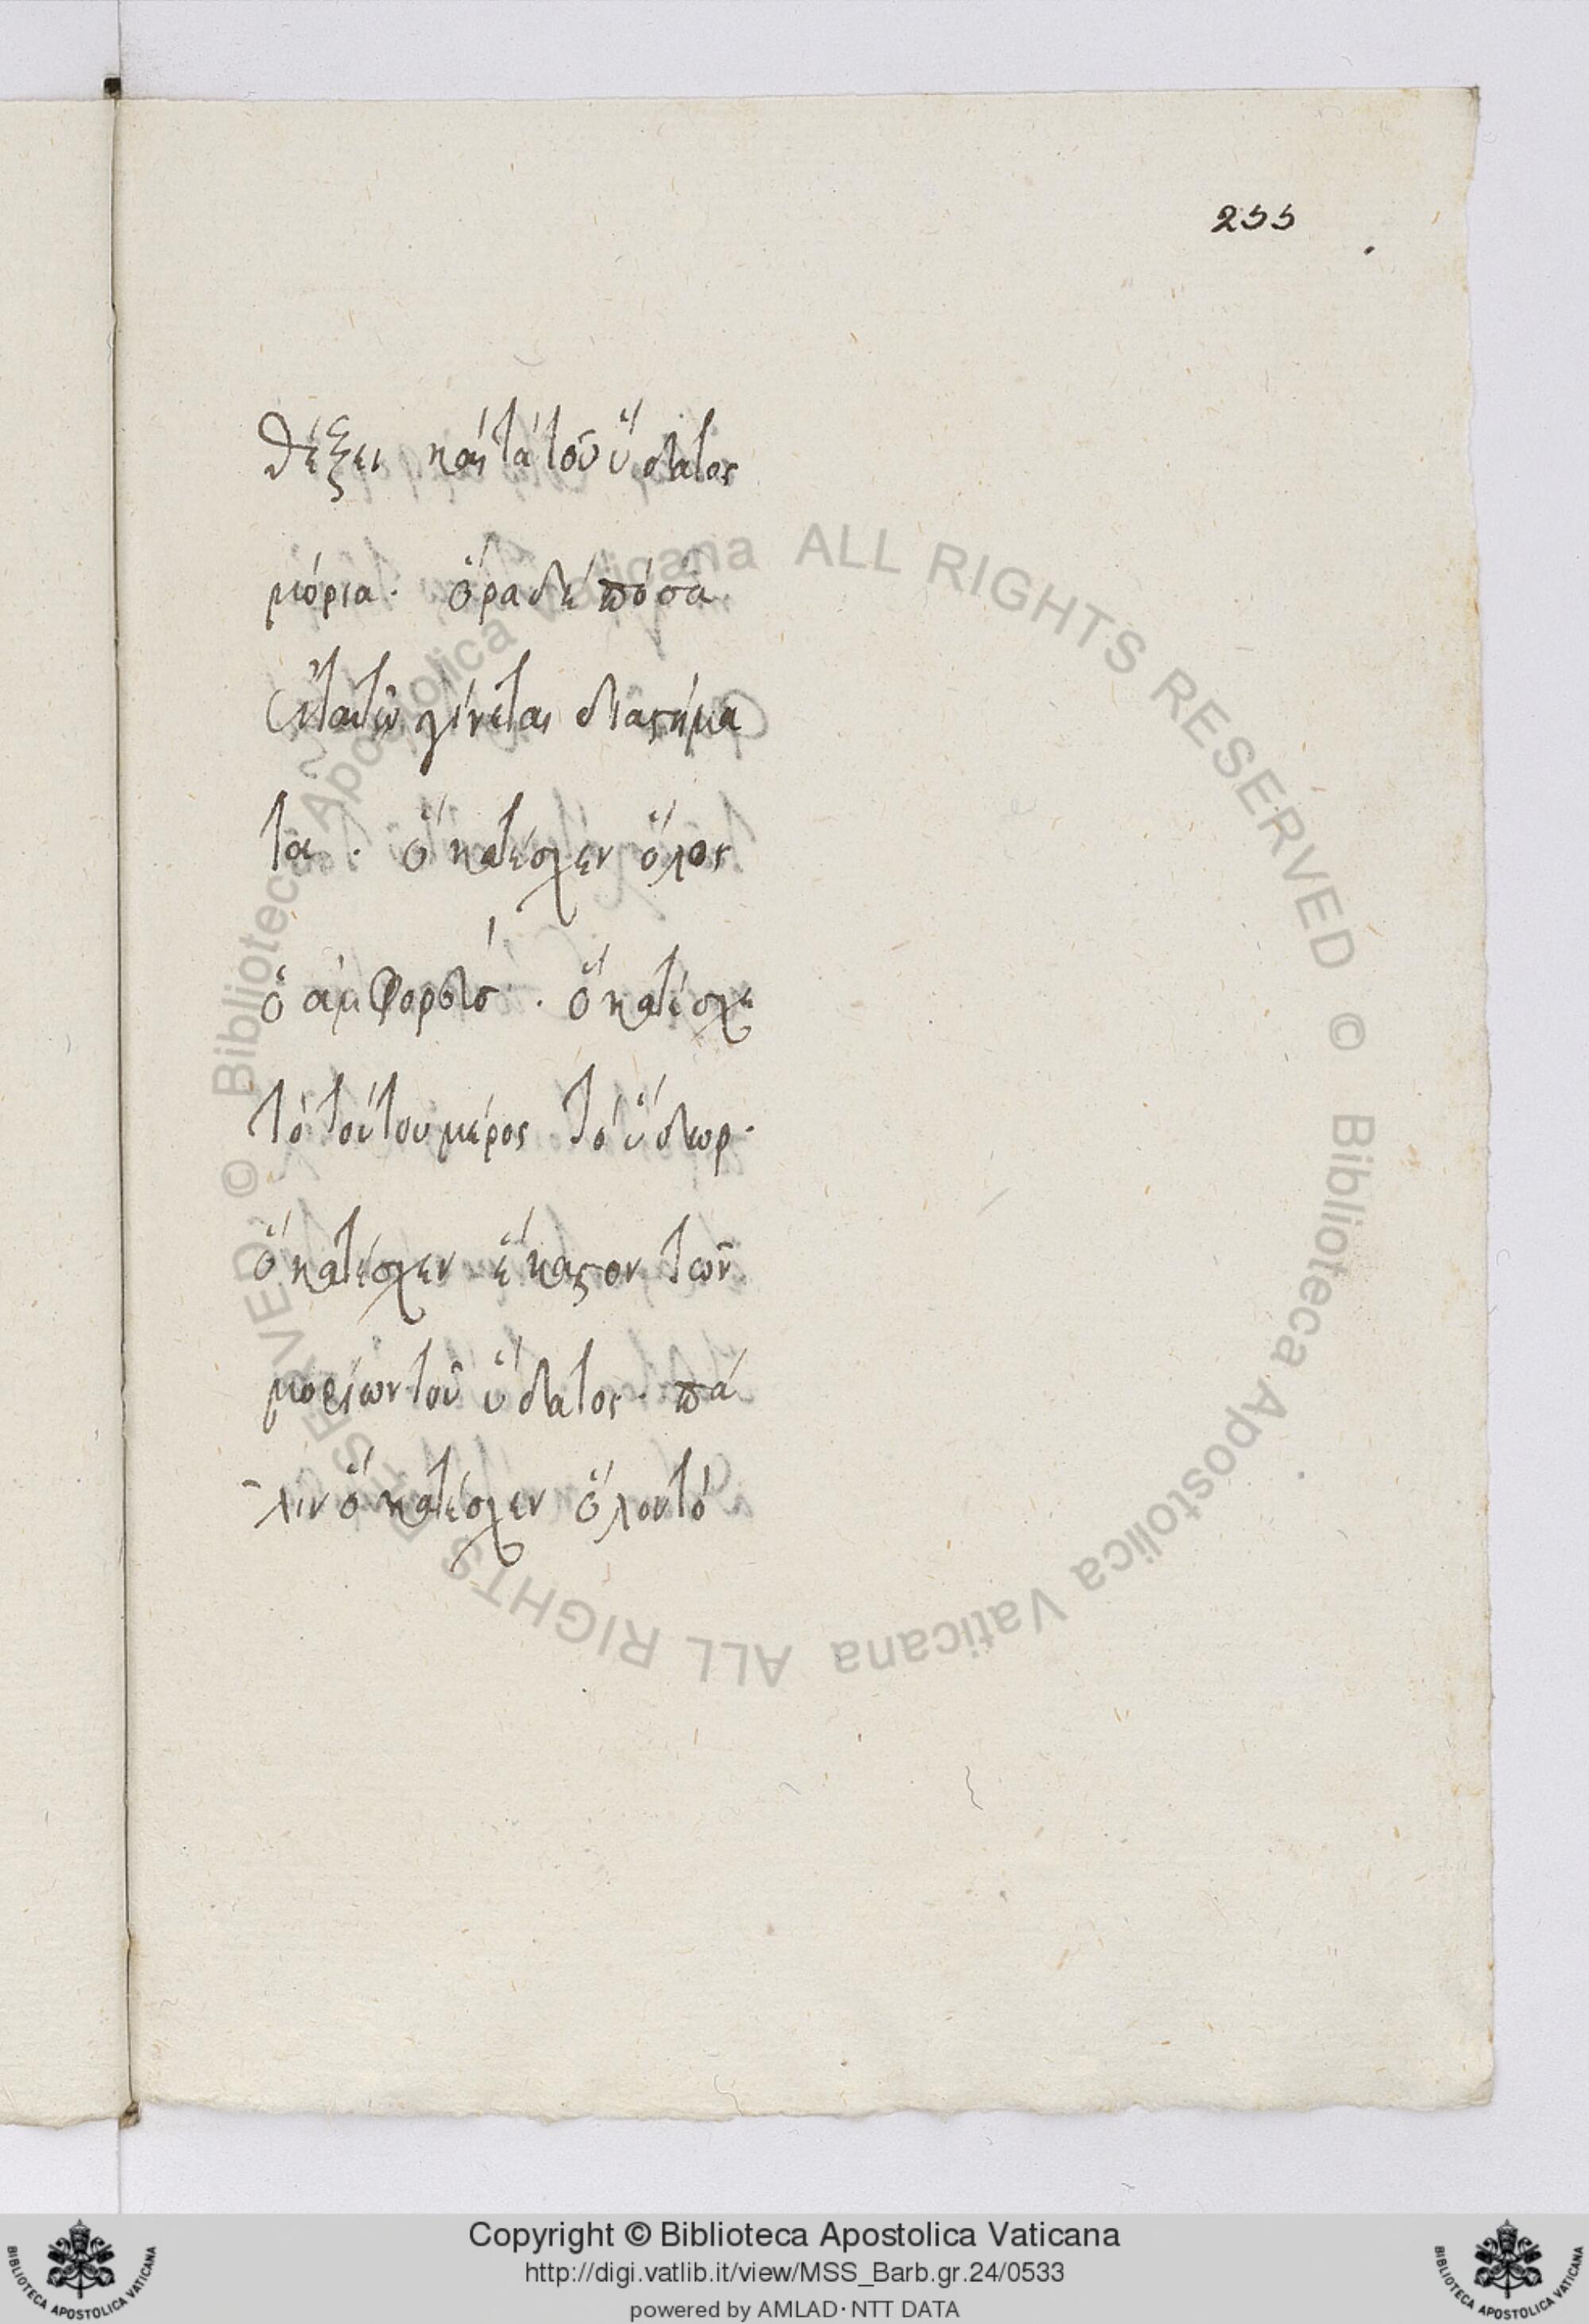 255
θέξει καὶ τὰ τοῦ ὕδατος
μόρια. ὅρα δὲ πόσα
ἐνταῦθα γίνεται διαστήμα
τα. ὃ κατέσχεν ὅλος
ὁ ἀμφορεύς. ὃ κατέσχε
τὸ τούτου μέρος τὸ ὕδωρ.
ὃ κατέσχεν ἕκαστον τῶν
μορίων τοῦ ὕδατος. πά
λιν ὃ κατέσχεν ὅλον τὸ
© Biblioteca Apostolica Vaticana ALL RIGHTS RESERVED
© Biblioteca Apostolica Vaticana ALL RIGHTS RESERVED
Copyright © Biblioteca Apostolica Vaticana
http://digi.vatlib.it/view/MSS_Barb.gr.24/0533
powered by AMLAD·NTT DATA
BIBLIOTECA APOSTOLICA VATICANA
BIBLIOTECA APOSTOLICA VATICANA